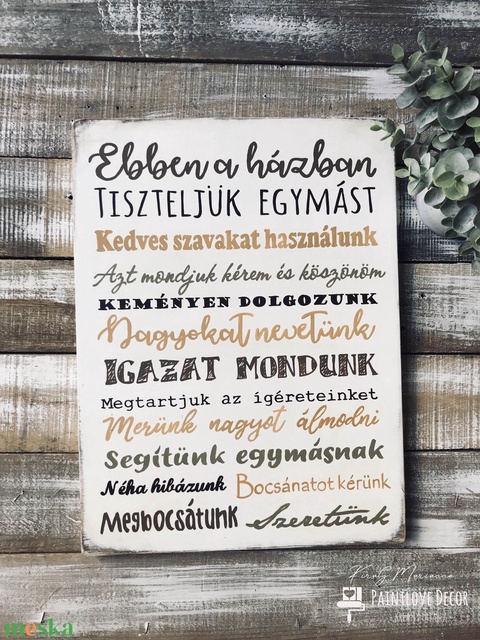 Ebben a házban
Tiszteljük egymást
Kedves szavakat használunk
Azt mondjuk kérem és köszönöm
KEMÉNYEN DOLGOZUNK
Nagyokat nevetünk
IGAZAT MONDUNK
Megtartjuk az ígéreteinket
Merünk nagyot álmodni
Segítünk egymásnak
Néha hibázunk Bocsánatot kérünk
Megbocsátunk Szeretünk
Király Marianna
PAINTLOVE DECOR
meska